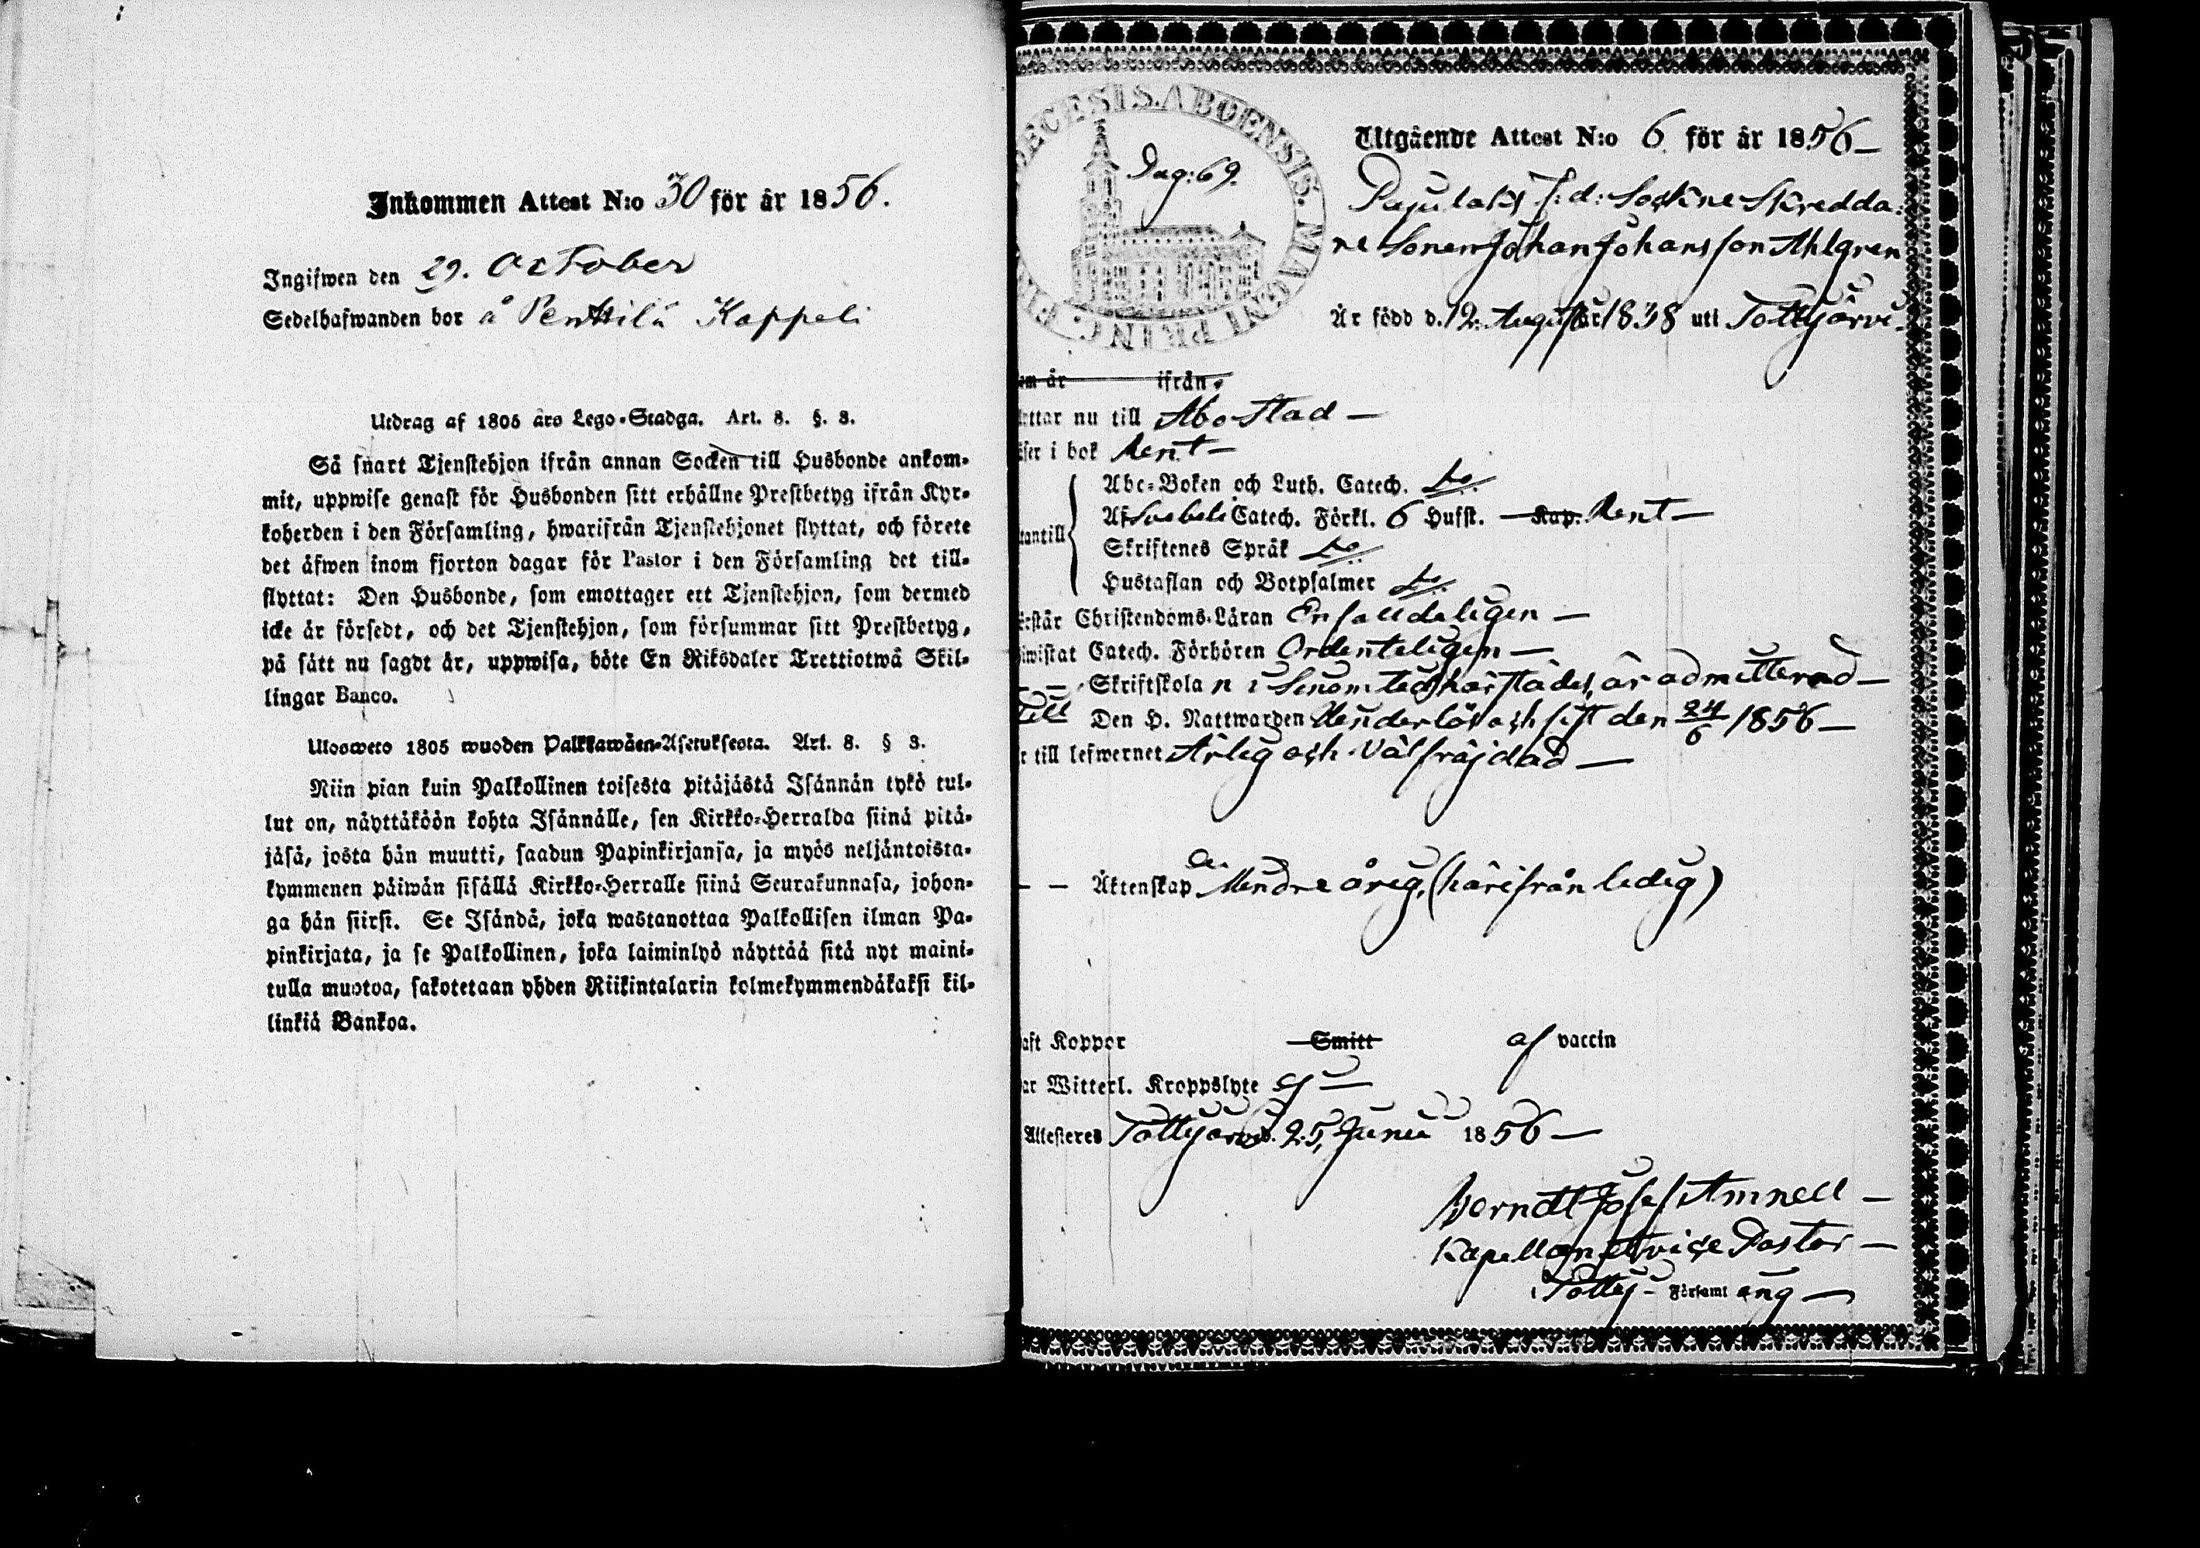 Inkommen Attest N:o 30 för år 1856.
Ingifwen den 29. October
Sedelhafwanden bor å Penttilä Kappeli
Utdrag af 1805 års Lego-Stadga. Art. 8. §. 3.
Så snart Tjenstehjon ifrån annan Socken till Husbonde ankom-
mit, uppwise genast för Husbonden sitt erhållne Prestbetyg ifrån Kyr-
koherden i den Församling, hwarifrån Tjenstehjonet flyttat, och förete
det äfwen inom fjorton dagar för Pastor i den Församling det till-
flyttat: Den Husbonde, som emottager ett Tjenstehjon, som dermed
icke är försedt, och det Tjenstehjon, som försummar sitt Prestbetyg,
på sätt nu sagdt är, uppwisa, böte En Riksdaler Trettiotwå Skil-
lingar Banco.
Ulosweto 1805 wuoden Palkkawäen-Asetuksesta. Art. 8. § 3.
Niin pian kuin Palkollinen toisesta pitäjästä Isännän tykö tul-
lut on, näyttäköön kohta Isännälle, sen Kirkko-Herralda siinä pitä-
jäsä, josta hän muutti, saadun Papinkirjansa, ja myös neljäntoista-
kymmenen päiwän sisällä Kirkko-Herralle siinä Seurakunnasa, johon-
ga hän siirsi. Se Isändä, joka wastanottaa Palkollisen ilman Pa-
pinkirjata, ja se Palkollinen, joka laiminlyö näyttää sitä nyt maini-
tulla muotoa, sakotetaan yhden Riikintalarin kolmekymmendäkaksi kil-
linkiä Bankoa.
DIECESIS. ABOENSIS. MAGNI PRINC. FINL.
Pag: 69.
Utgående Attest N:o 6 för år 1856—
Pajulaks f: d: Sockne Skredda-
re Sonen Johan Johansson Ahlgren
Är född d. 12. Augusti år 1838 uti Tottijärvi.
om år ifrån
yttar nu till Åbo Stad —
äser i bok Rent —
tantill
Abc-Boken och Luth. Catech. do.
Af Svebeli Catech. Förkl. 6 Hufst. — Kap. Rent —
Skriftenes Språk do
Hustaflan och Botpsalmer do.
örstår Christendoms-Läran Enfalldeligen —
iwistat Catech. Förhören Ordenteligen —
— Skriftskolan i Sinom tid härstädes, är admitterad —
Till Den H. Nattwarden Menderlös och sist den 24/6 1856 —
r till lefwernet Ärlig och Välfräjdad —
— — Äktenskap Mindre årig, (härifrån ledig)
aft Koppor Smitt af vaccin
ar Witterl. Kroppslyte ej —
Attesteres Tottijärvi d. 25, Junii 1856 —
Berndt Josef Amnell —
Kapellan et vice Pastor —
i Tottij — Församling —